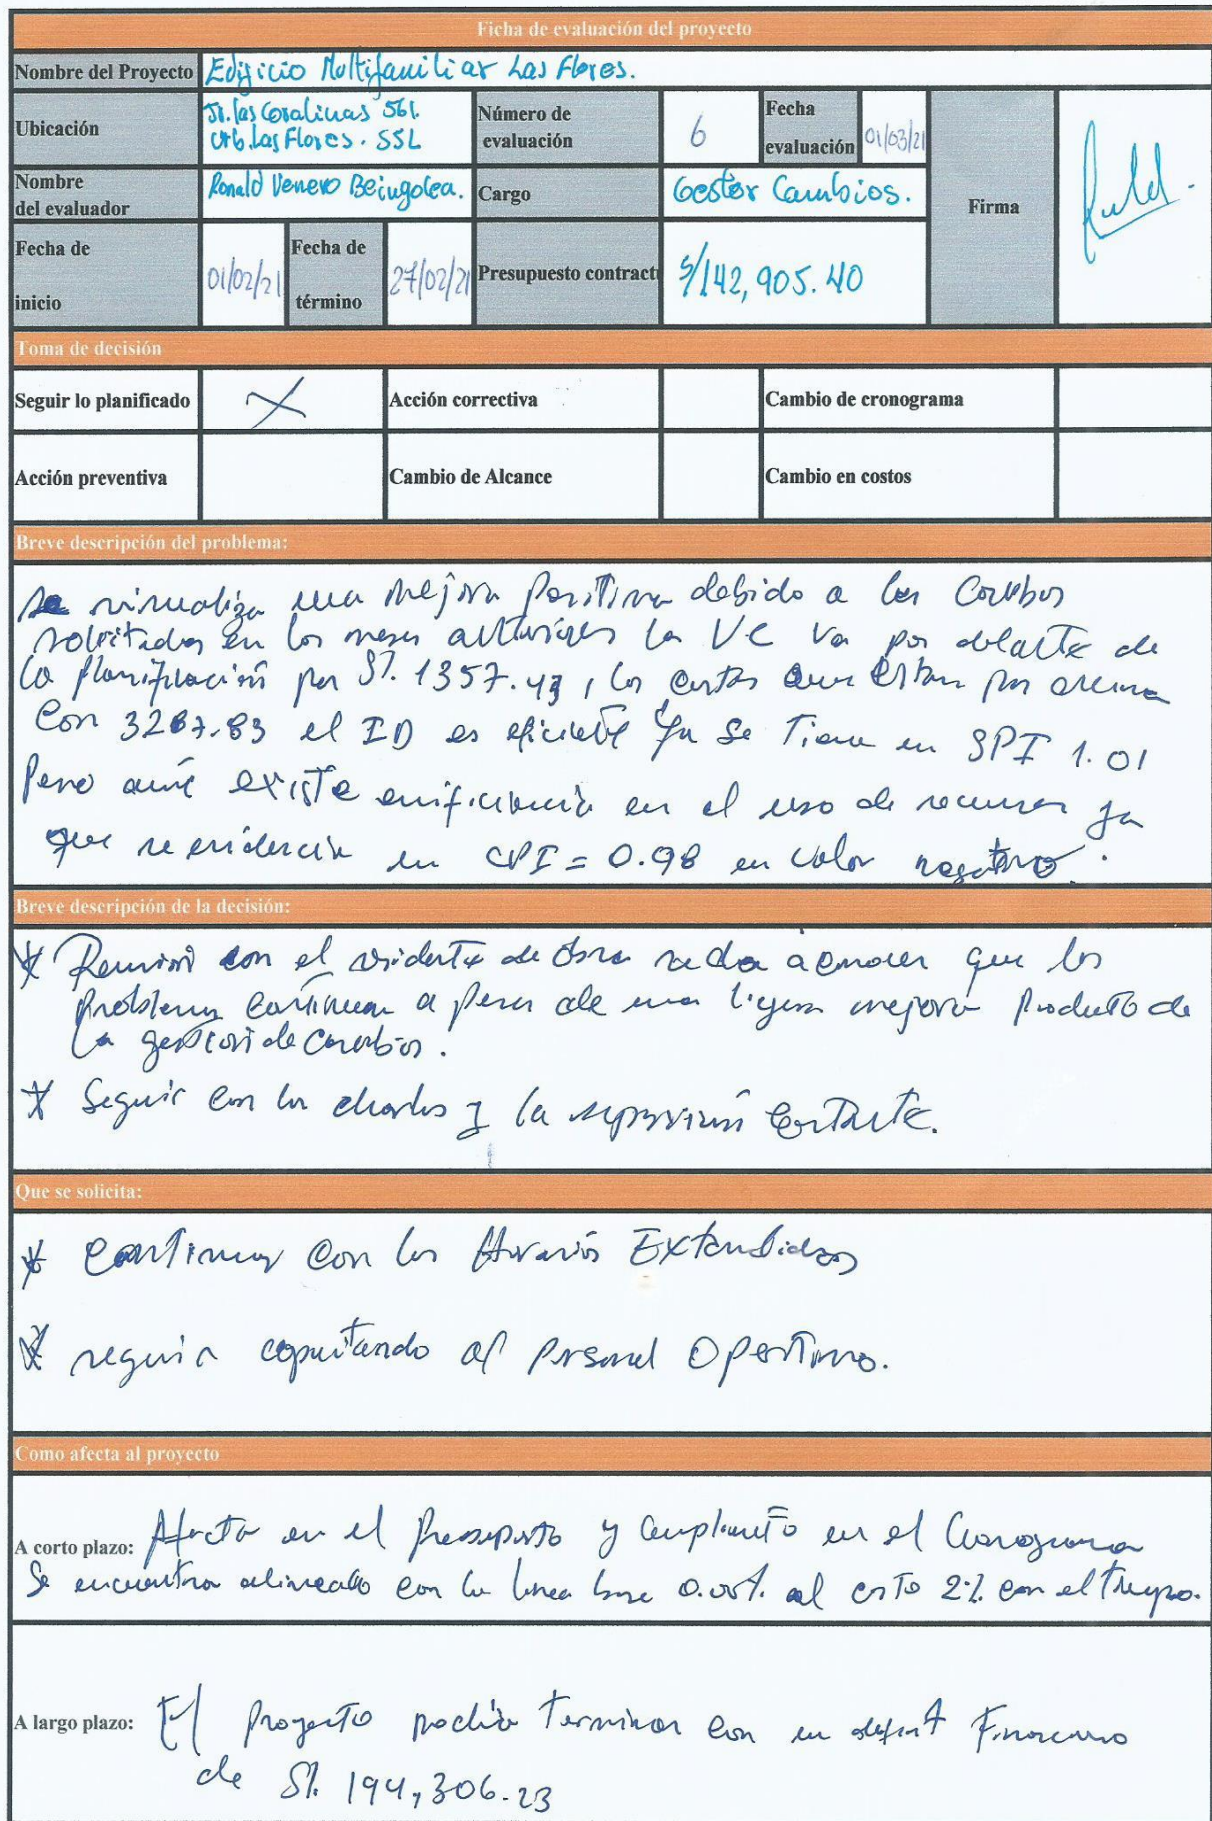 Ficha de evaluación del proyecto
Nombre del Proyecto Edificio Multifamiliar Las Flores.
Ubicación Jr. las Coralinas 561.
Urb. Las Flores. SSL
Número de evaluación 6
Fecha evaluación 01/03/21
Nombre del evaluador Ronald Venero Beingolea.
Cargo Gestor Cambios.
Firma
Fecha de inicio 01/02/21
Fecha de término 27/02/21
Presupuesto contractu S/142,905.40
Toma de decisión
Seguir lo planificado X Acción correctiva Cambio de cronograma
Acción preventiva Cambio de Alcance Cambio en costos
Breve descripción del problema:
Se visualiza una mejora positiva debido a los cambios
solicitados en los meses anteriores la VC va por delante de
la planificación por S/. 1357.43, los costos aun estan por encima
con 3287.83 el ID es eficiente ya se tiene un SPI 1.01
Pero aun existe en el uso de recursos ya
que se evidencia un CPI = 0.98 en valor negativo.
Breve descripción de la decisión:
* Reunion con el residente de obra se da a conocer que los
problemas continuan a pesar de una ligera mejora producto de
la gestion de cambios.
* Seguir con las charlas y la supervisión
Que se solicita:
* Continuar con los Horarios Extendidos
* seguir capacitando al personal Operativo.
Como afecta al proyecto
A corto plazo: Afecta en el Presupuesto y en el Cronograma
Se encuentra alineado con la linea base al costo 2% con el tiempo.
A largo plazo: El proyecto podria terminar con un deficit Financiero
de S/. 194,306.23